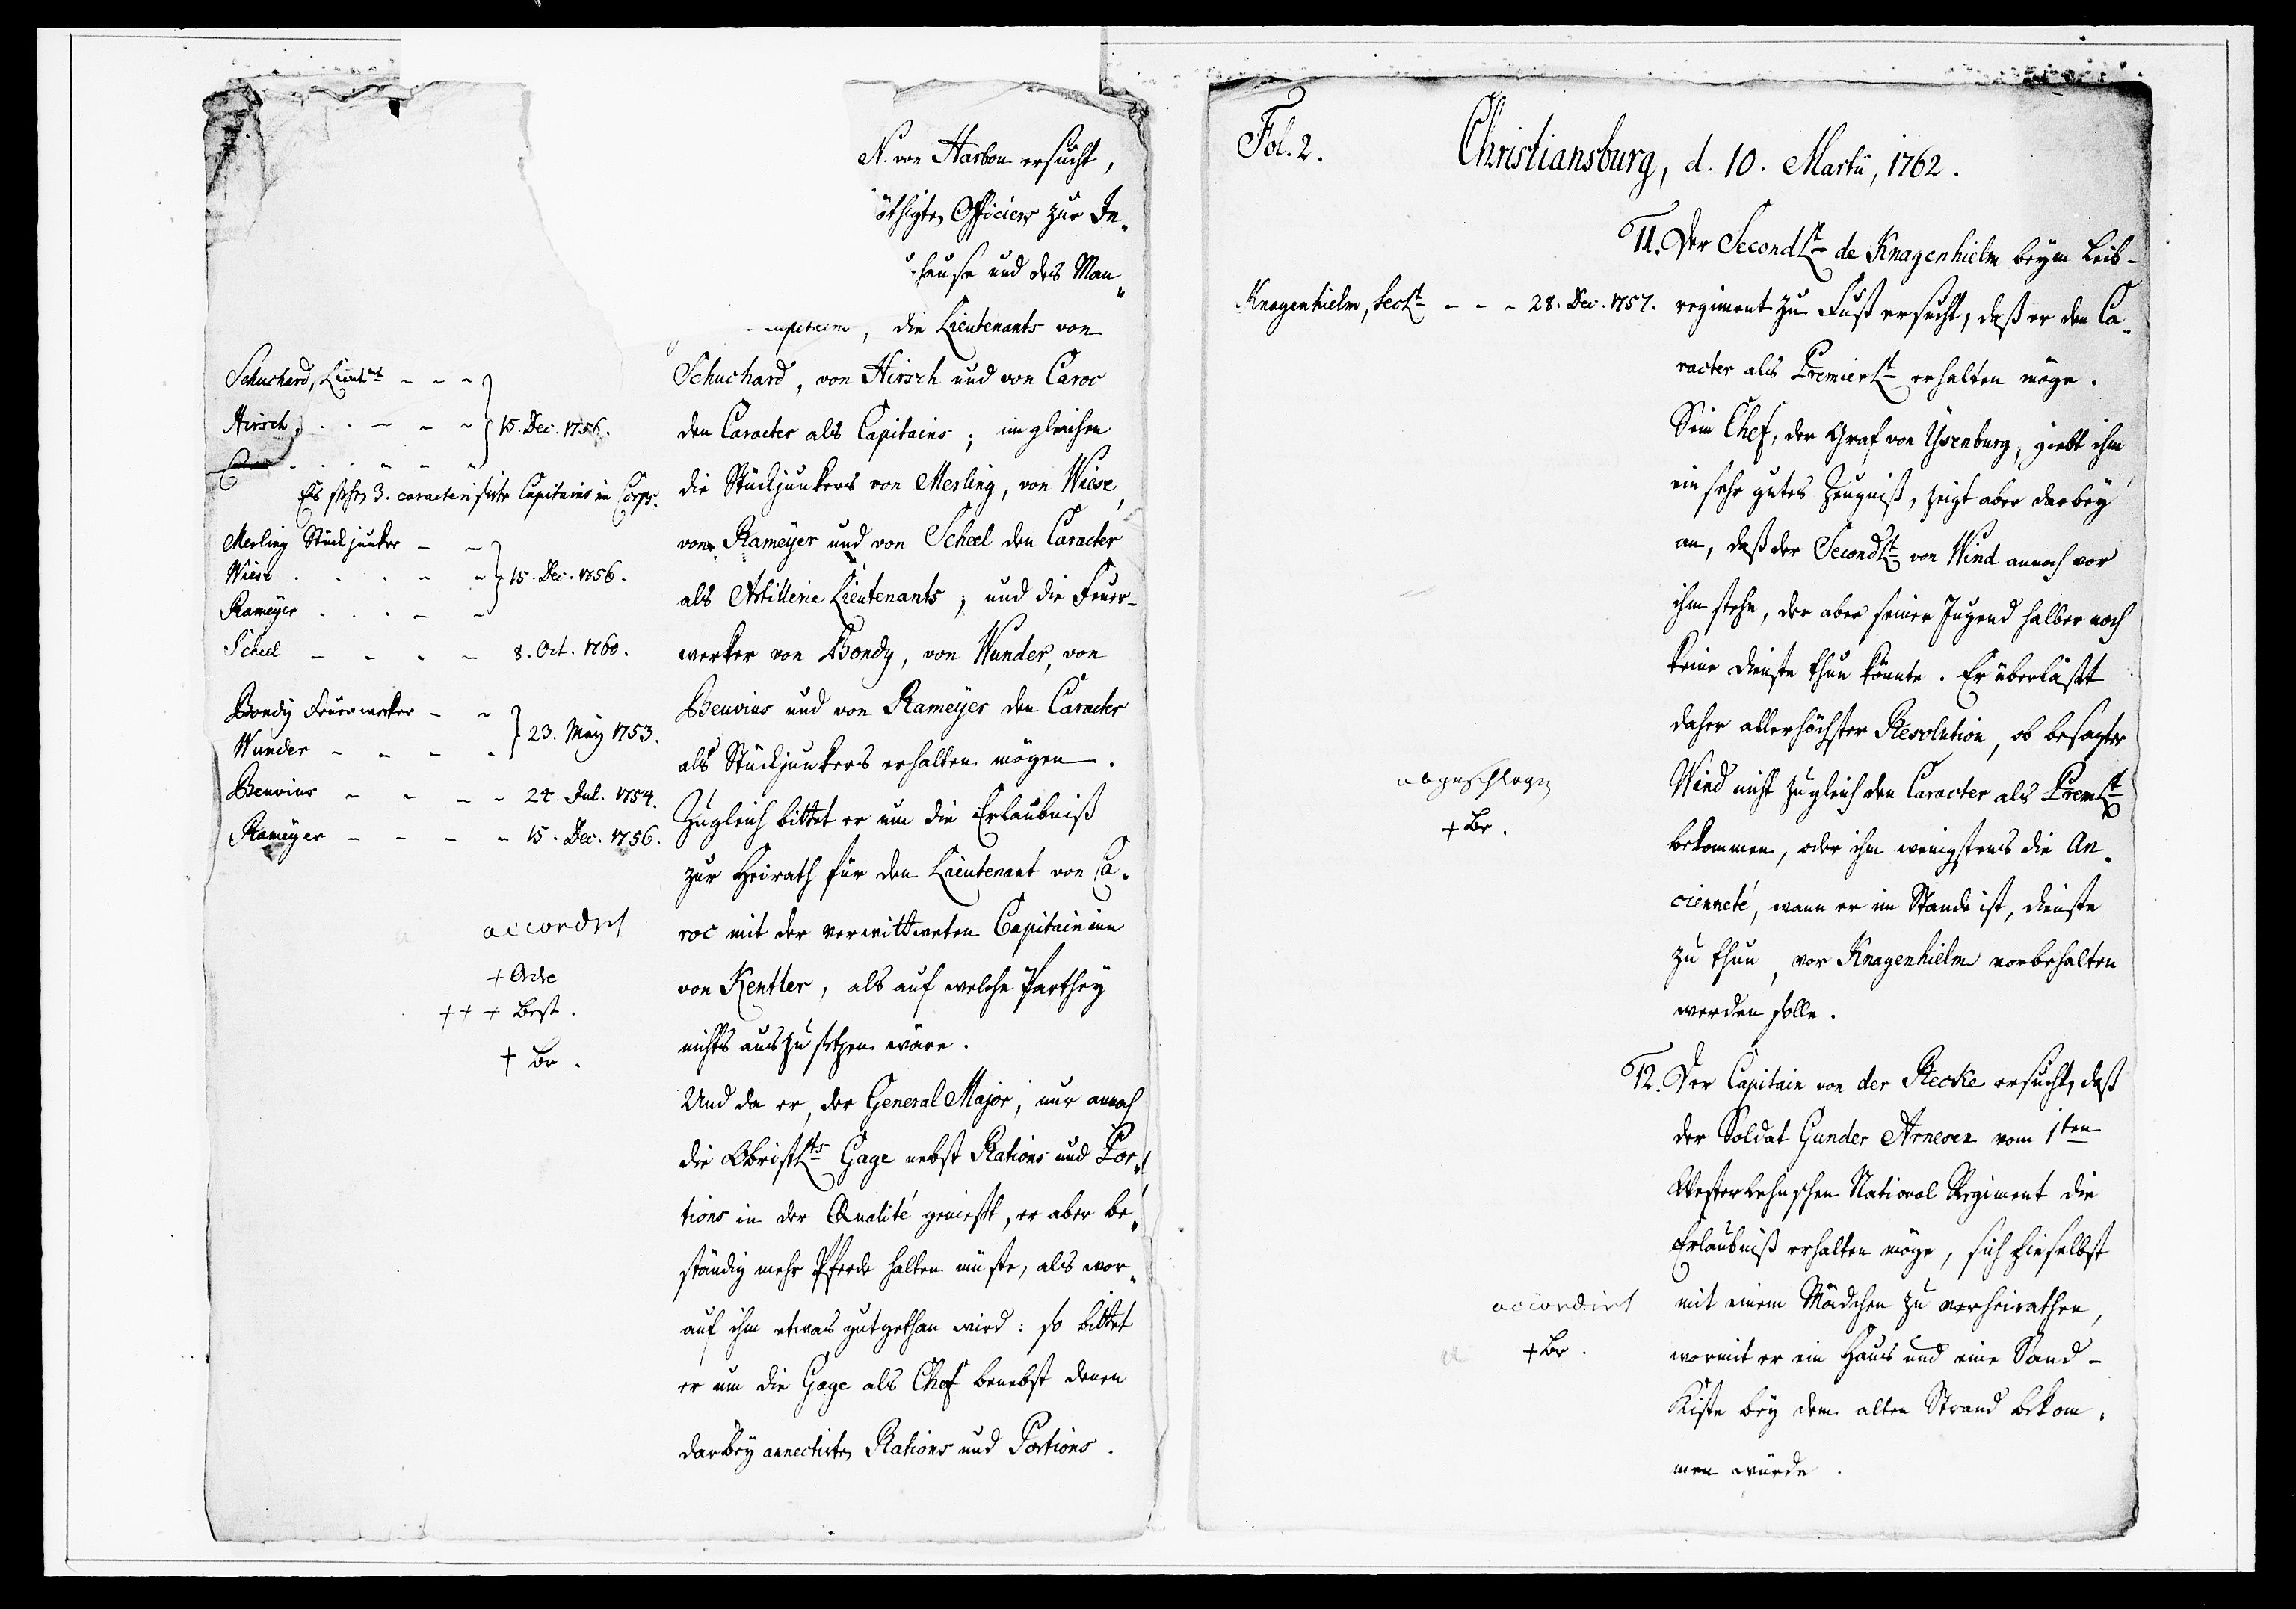 N. von Harbou ersucht,
öthigten Officiers zur In„
hause und des Man„
die Lieutenants von
Schuchard, Lieut<sup>nt</sup> - - -
Hirsch, . . - - -
15. Dec. 1756.
Es stehen 3. caracterisirte Capitains im Corps.
Merling Stückjunker - -
Wiese . . . - -
Rameyer . . . - -
15. Dec. 1756.
Scheel - - - - 8. Oct. 1760.
Bondy Feuerwerker - -
Wunder - - - -
23. May 1753.
Beuvius - - - - 24. Jul. 1754.
Rameyer - - - - 15. Dec. 1756.
accordirt
+ Orde
+++ Best.
+ Br.
Schuchard, von Hirsch und von Caroc
den Caracter als Capitains; im gleichen
die Stückjunkers von Merling, von Wiese,
von Rameyer und von Scheel den Caracter
als Artillerie Lieutenants; und die Feuer-
werker von Bondy, von Wunder, von
Beuvius und von Rameyer den Caracter
als Stückjunkers erhalten mögen.
Zugleich bittet er um die Erlaubniß
zur Heirath für den Lieutenant von Ca„
roc mit der verwittweten Capitainin
von Kentler, als auf welche Parthey
nichts auszusetzen wäre.
Und da er, der General Major, nur annoch
die ObristLts Gage nebst Rations und Por„
tions in der Qualité genießt, er aber be„
ständig mehr Pferde halten müste, als wor„
auf ihm etwas gutgethan wird: so bittet
er um die Gage als Chef benebst denen
darbey annectirten Rations und Portions.
Fol. 2. Christiansburg, d. 10. Martii, 1762.
11. Der SecondLt de Knagenhielm beym Leib-
Knagenhielm, SecLt - - - 28. Dec. 1757. regiment zu Fuß ersucht, daß er den Ca„
racter als PremierLt erhalten möge.
Sein Chef, der Graf von Ysenburg, giebt ihm
ein sehr gutes Zeugniß, zeigt aber darbey
an, daß der SecondLt von Wind annoch vor
ihm stehe, der aber seiner Jugend halber noch
keine Dienste thun könnte. Er überläßt
daher allerhöchster Resolution, ob besagter
abgeschlagen Wind nicht zugleich den Caracter als PremLt
+ Br. bekommen, oder ihm wenigstens die An„
cienneté, wann er im Stande ist, Dienste
zu thun, vor Knagenhielm vorbehalten
werden solle.
12. Der Capitain von der Recke ersucht, daß
der Soldat Gunder Arnesen vom 1ten
Westerlehnschen National Regiment die
Erlaubniß erhalten möge, sich hieselbst
accordirt mit einem Mädchen zu verheirathen,
+ Br. wormit er ein Haus und eine Sand-
Kiste bey dem alten Strand bekom„
men würde.